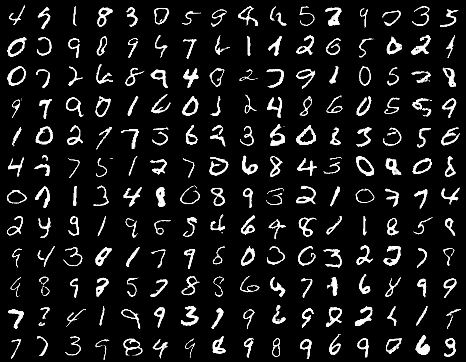 4 9 1 8 3 0 5 9 8 6 5 7 9 0 3 5
0 0 9 8 9 4 7 6 1 1 2 6 5 0 2 1
0 7 2 6 8 9 4 0 2 7 9 1 0 5 7 8
9 7 9 0 1 6 0 3 2 4 8 6 0 5 5 9
1 0 2 7 7 3 6 2 3 6 0 8 3 0 5 6
4 2 7 5 1 2 7 0 6 8 4 3 0 9 0 8
0 7 1 3 4 8 0 8 9 3 2 1 0 7 7 4
2 4 9 1 9 5 5 4 6 9 8 1 1 8 5 9
9 4 3 8 1 7 9 8 0 3 0 3 2 2 7 8
9 8 9 8 5 7 8 8 6 4 7 1 6 8 9 9
7 2 4 1 9 9 3 7 9 6 9 8 2 2 1 1
7 7 3 9 8 4 9 8 9 8 9 6 9 0 6 3